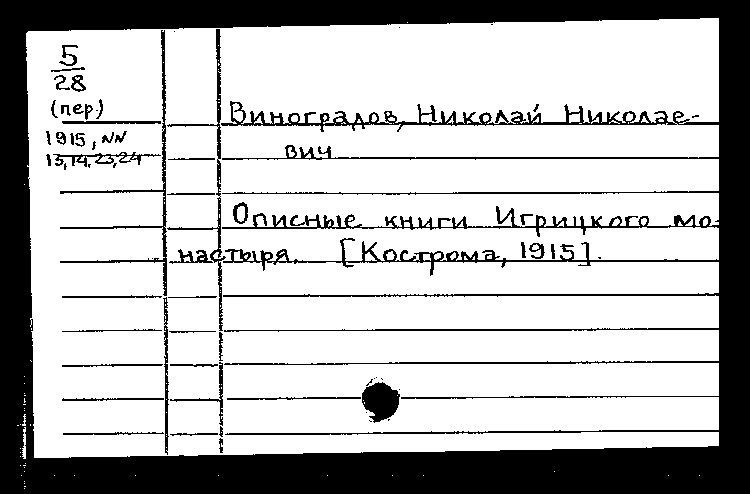 5
28
(пер.)
1915, NN
13,14,23,24
Виноградов, Николай Николае-
вич
Описные книги Игрицкого мо-
настыря. [Кострома, 1915].